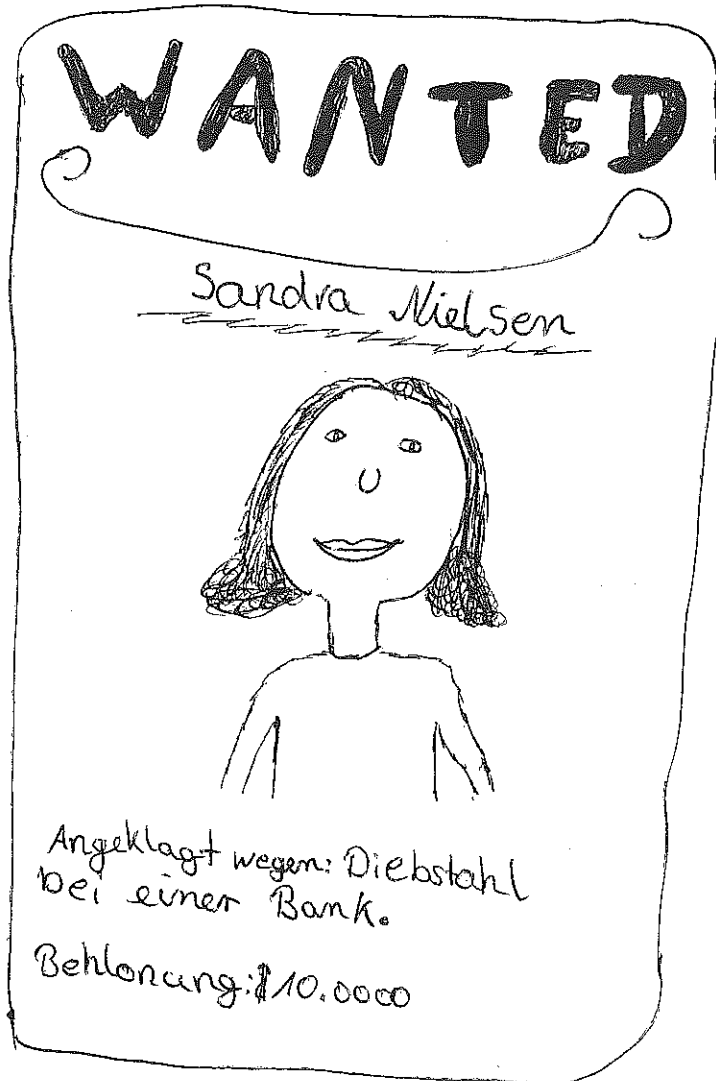 WANTED
Sandra Nielsen
Angeklagt wegen: Diebstahl
bei einer Bank.
Behlonung: $10.0000